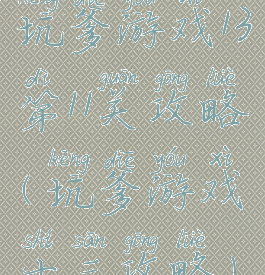 kēng diē yóu xì
坑爹游戏13
dì guān gōng lüè
第11关攻略
kēng diē yóu xì
(坑爹游戏
shí sān gōng lüè
十三攻略)